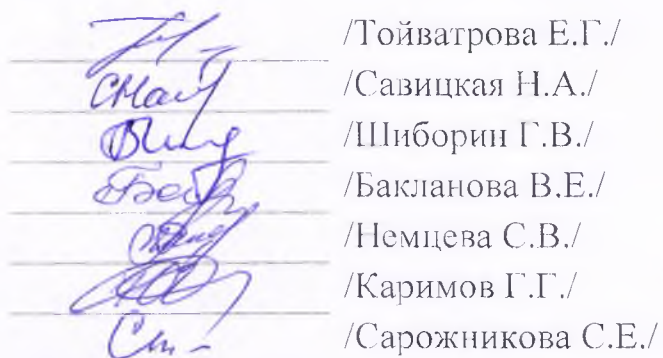 /Тойватрова Е.Г./
/Савицкая Н.А./
/Шиборин Г.В./
/Бакланова В.Е./
/Немцева С.В./
/Каримов Г.Г./
/Сарожникова С.Е./